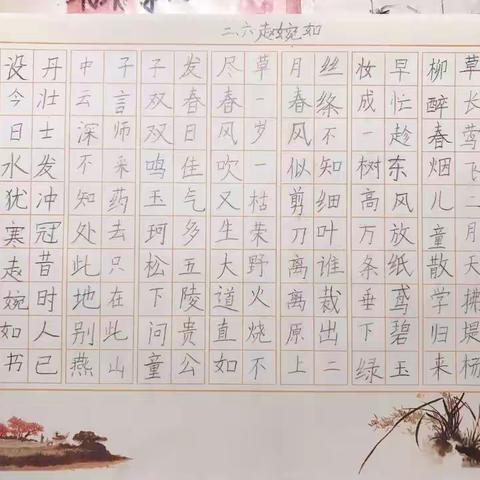 二.六赵婉如
草长莺飞二月天拂堤杨
柳醉春烟儿童散学归来
早忙趁东风放纸鸢碧玉
妆成一树高万条垂下绿
丝绦不知细叶谁裁出二
月春风似剪刀离离原上
草一岁一枯荣野火烧不
尽春风吹又生大道直如
发春日佳气多五陵贵公
子双双鸣玉珂松下问童
子言师采药去只在此山
中云深不知处此地别燕
丹壮士发冲冠昔时人已
没今日水犹寒赵婉如书